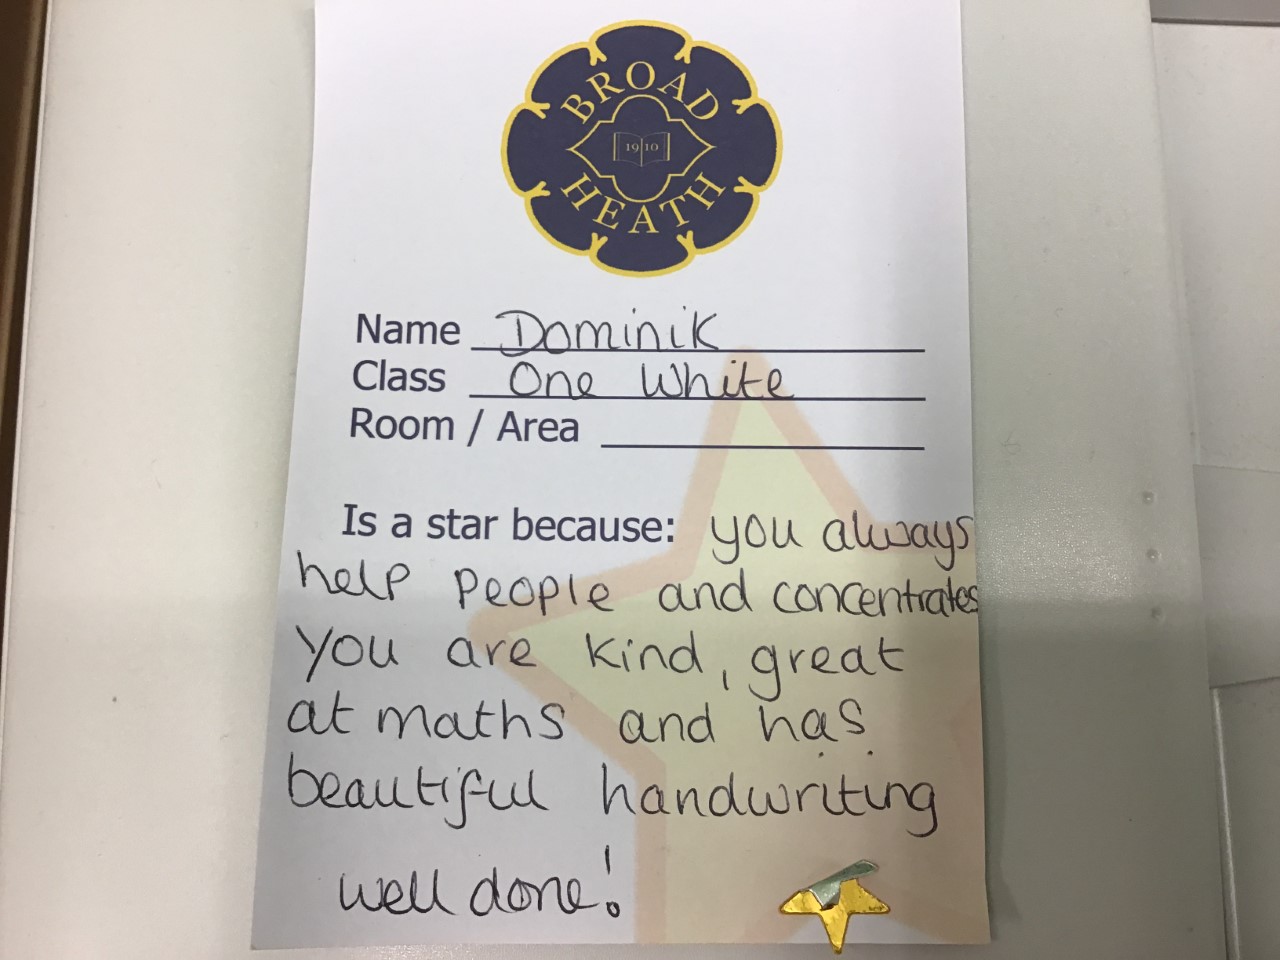 BROAD
19 10
HEATH
Name Dominik
Class One White
Room / Area
Is a star because: you always
help people and concentrates
you are kind, great
at maths and has
beautiful handwriting
well done!